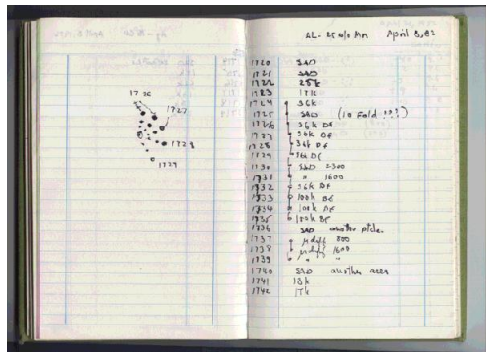 1726
1727
1728
1729
Al-25 w/o Mn April 8, 82
1720 SAD
1721 SAD
1722 25k
1723 17k
1724 36k
1725 SAD (10 Fold ???)
1726 36k DF
1727 36k DF
1728 36k DF
1729 36k DF
1730 SAD 2300
1731 " 1600
1732 36k DF
1733 100k BF
1734 100k DF
1735 100k BF
1736 SAD another ptcle.
1737 μdiff 800
1738 μdiff 1600
1739 " "
1740 SAD another area
1741 13k
1742 17k